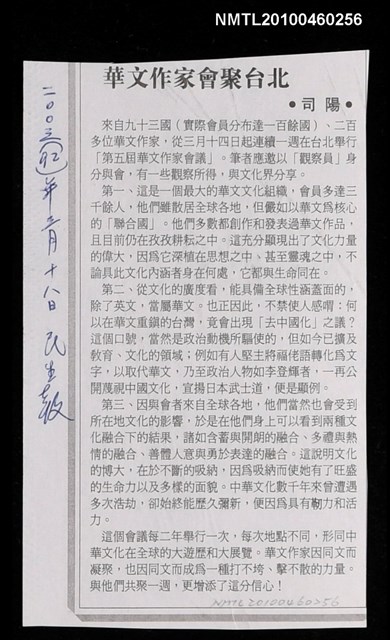 NMTL20100460256
華文作家會聚台北
•司陽•
來自九十三國（實際會員分布達一百餘國）、二百
多位華文作家，從三月十四日起連續一週在台北舉行
「第五屆華文作家會議」。筆者應邀以「觀察員」身
分與會，有一些觀察所得，與文化界分享。
第一、這是一個最大的華文文化組織，會員多達三
千餘人，他們雖散居全球各地，但儼如以華文爲核心
的「聯合國」。他們多數都創作和發表過華文作品，
且目前仍在孜孜耕耘之中。這充分顯現出了文化力量
的偉大，因爲它深植在思想之中、甚至靈魂之中，不
論具此文化內涵者身在何處，它都與生命同在。
第二、從文化的廣度看，能具備全球性涵蓋面的，
除了英文，當屬華文。也正因此，不禁使人感喟：何
以在華文重鎮的台灣，竟會出現「去中國化」之議？
這個口號，當然是政治動機所驅使的，但如今已擴及
敎育、文化的領域；例如有人堅主將福佬語轉化爲文
字，以取代華文，乃至政治人物如李登輝者，一再公
開蔑視中國文化，宣揚日本武士道，便是顯例。
第三、因與會者來自全球各地，他們當然也會受到
所在地文化的影響，於是在他們身上可以看到兩種文
化融合下的結果，諸如含蓄與開朗的融合、多禮與熱
情的融合、善體人意與勇於表達的融合。這說明文化
的博大，在於不斷的吸納，因爲吸納而使她有了旺盛
的生命力以及多樣的面貌。中華文化數千年來曾遭遇
多次浩劫，卻始終能歷久彌新，便因爲具有韌力和活
力。
這個會議每二年舉行一次，每次地點不同，形同中
華文化在全球的大遊歷和大展覽。華文作家因同文而
凝聚，也因同文而成爲一種打不垮、擊不散的力量。
與他們共聚一週，更增添了這分信心！
二００三(92)年三月十八日 民生報
NMTL20100460256